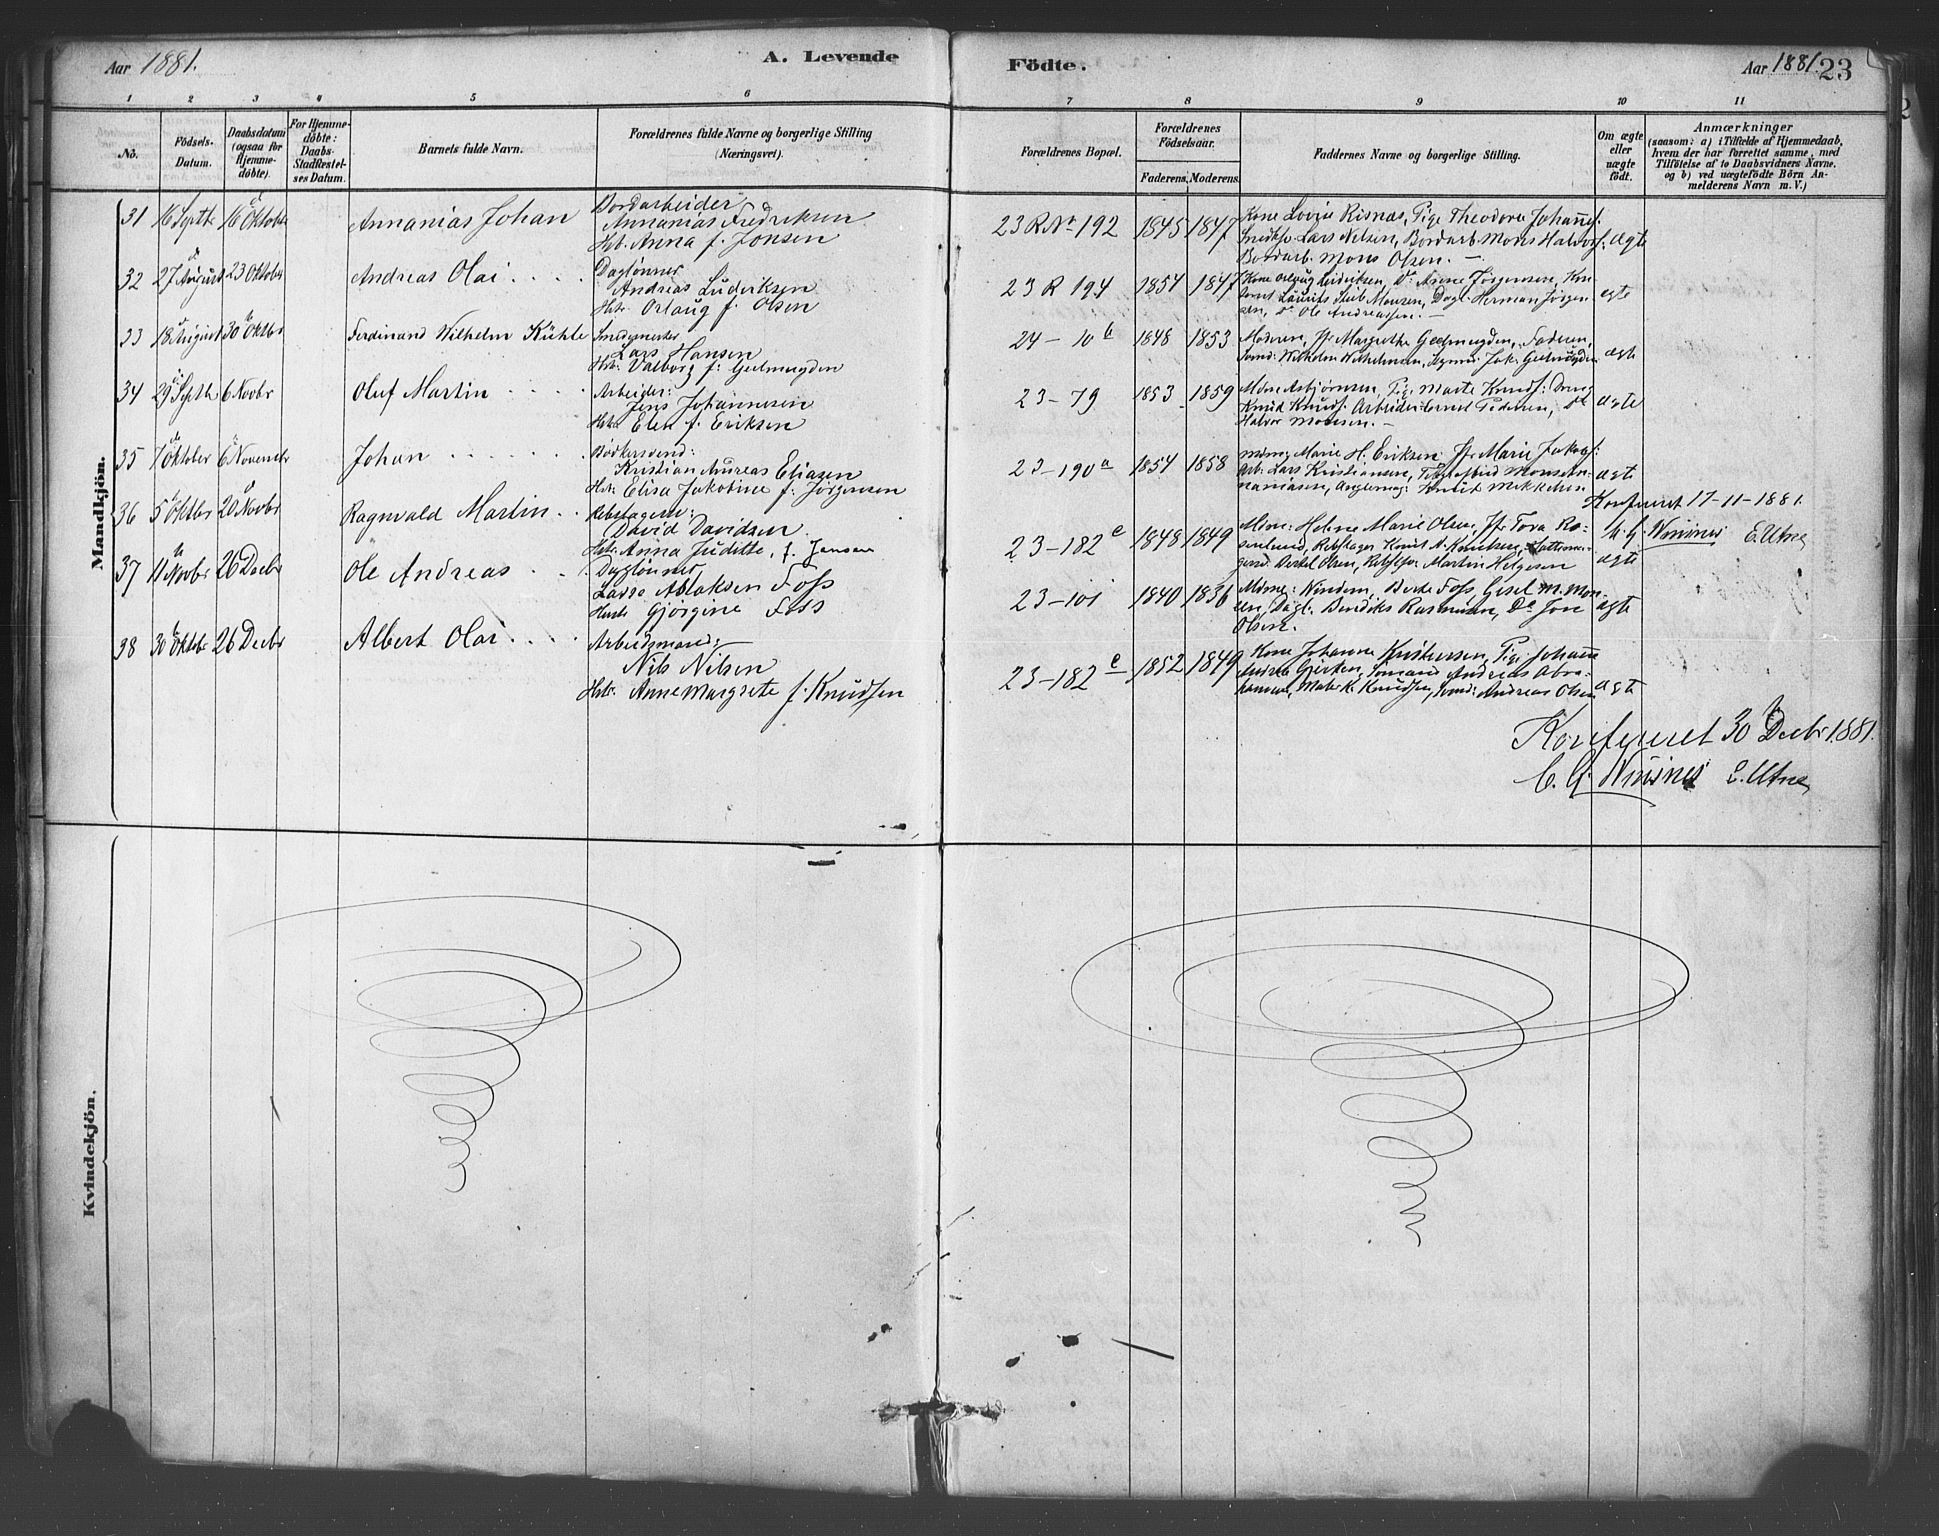 Aar 1881.
A. Levende Födte.
Aar 1881. 23
1 2 3 4 5 6 7 8 9 10 11
No.
Födsels-Datum.
Daabsdatum (ogsaa for Hjemme-döbte).
For Hjemme-döbte: Daabs-Stadfæstel-ses Datum.
Barnets fulde Navn.
Forældrenes fulde Navne og borgerlige Stilling (Næringsvei).
Forældrenes Bopæl.
Forældrenes Födselsaar.
Faderens. Moderens.
Faddernes Navne og borgerlige Stilling.
Om ægte eller uægte födt.
Anmærkninger
(saasom: a) i Tilfælde af Hjemmedaab, hvem der har forrettet samme, med Tilföielse af to Daabsvidners Navne, og b) ved uægtefödte Börn An-melderens Navn m. V.)
Mandkjön.
31 16 Septbr 16 Oktober Annanias Johan
Bordarbeider
Annanias Fredriksen
Hst. Anna f. Jonsen
23 R No 192 1845 1847
Kone Lovise Risnæs, Pige Theodora Johannes:
Lars Nielsen, Bordarb. Mons Halvors:
Bordarb. Mons Olsen. —
ægte
32 27 August 23 Oktober Andreas Olai
Daglønner
Andreas Luderiksen
Hst. Orlaug f. Olsen
23 R 194 1854 1847
Kone Luderiksen, Do Anne Jörgensen, Kon
Laurits Monsen, Dagl. Herman Jörgen
sen, Do Ole Andreassen. —
ægte
33 18 August 30 Oktbr Ferdinand Wilhelm Kühle
Smedmester
Lars Hansen
Hst. Valborg f. Geelmuyden
24 – 10 b 1848 1853
Moderen, Jfr Margrethe Geelmuyden, Faderen,
Wilhelm Wilhelmsen, Jak. Geelmuyden
ægte
34 29 Septbr 6 Novbr Oluf Martin
Arbeider:
Jens Johannesen
Hst. Elen f. Eriksen
23 – 79 1853 1859
Mdme Asbjörnsen, Pige Marte Knuds: Dreng
Knud Knuds: Arbeider Pedersen, Do
Halvor Monsen. —
ægte
35 7 Oktober 6 November Johan
Bødkersvend:
Kristian Andreas Eliasen
Hst. Elisa Jakobine f. Jörgensen
23 – 190 a 1854 1858
Mdme Marie H. Eriksen Jfr Marie Jakobs:
Arb: Lars Kristiansen, Mons An-
naniasen, Knud Mikkelsen
ægte
Konfereret 17-11-1881.
C. G. Winsnes E. Utne
36 5 Oktbr 20 Novbr Ragnvald Martin
Rebslagersv:
David Davidsen
Hst. Anna Juditte, f. Jensen
23 – 182 e 1848 1849
Mdme: Helene Marie Olsen, Jfr Tora Ro-
senlund, Rebslager Knud A. Knudsen,
Bertel Olsen, Martin Helgesen
ægte
37 11 Novbr 26 Decbr Ole Andreas
Daglønner
Lasse Aslaksen Foss
Hust. Gjörgine Foss
23 – 101 1840 1836
Mdme: Berte Foss, Gisel M. Mon-
sen, Dagl. Bendiks Rasmussen, Do Jon
Olsen.
ægte
38 30 Oktbr 26 Decbr Albert Olai
Arbeidsmand:
Nils Nilsen
Hst. Anne Margrete f. Knudsen
23 – 182 e 1852 1849
Kone Johanne Kristensen, Pige Johanne
Andrea Gjerken, Sömand Andreas Abra-
hamsen, K. Knudsen, Andreas Olsen
ægte
Konfereret 30 Decbr 1881.
C. G. Winsnes E. Utne
Kvindekjön.